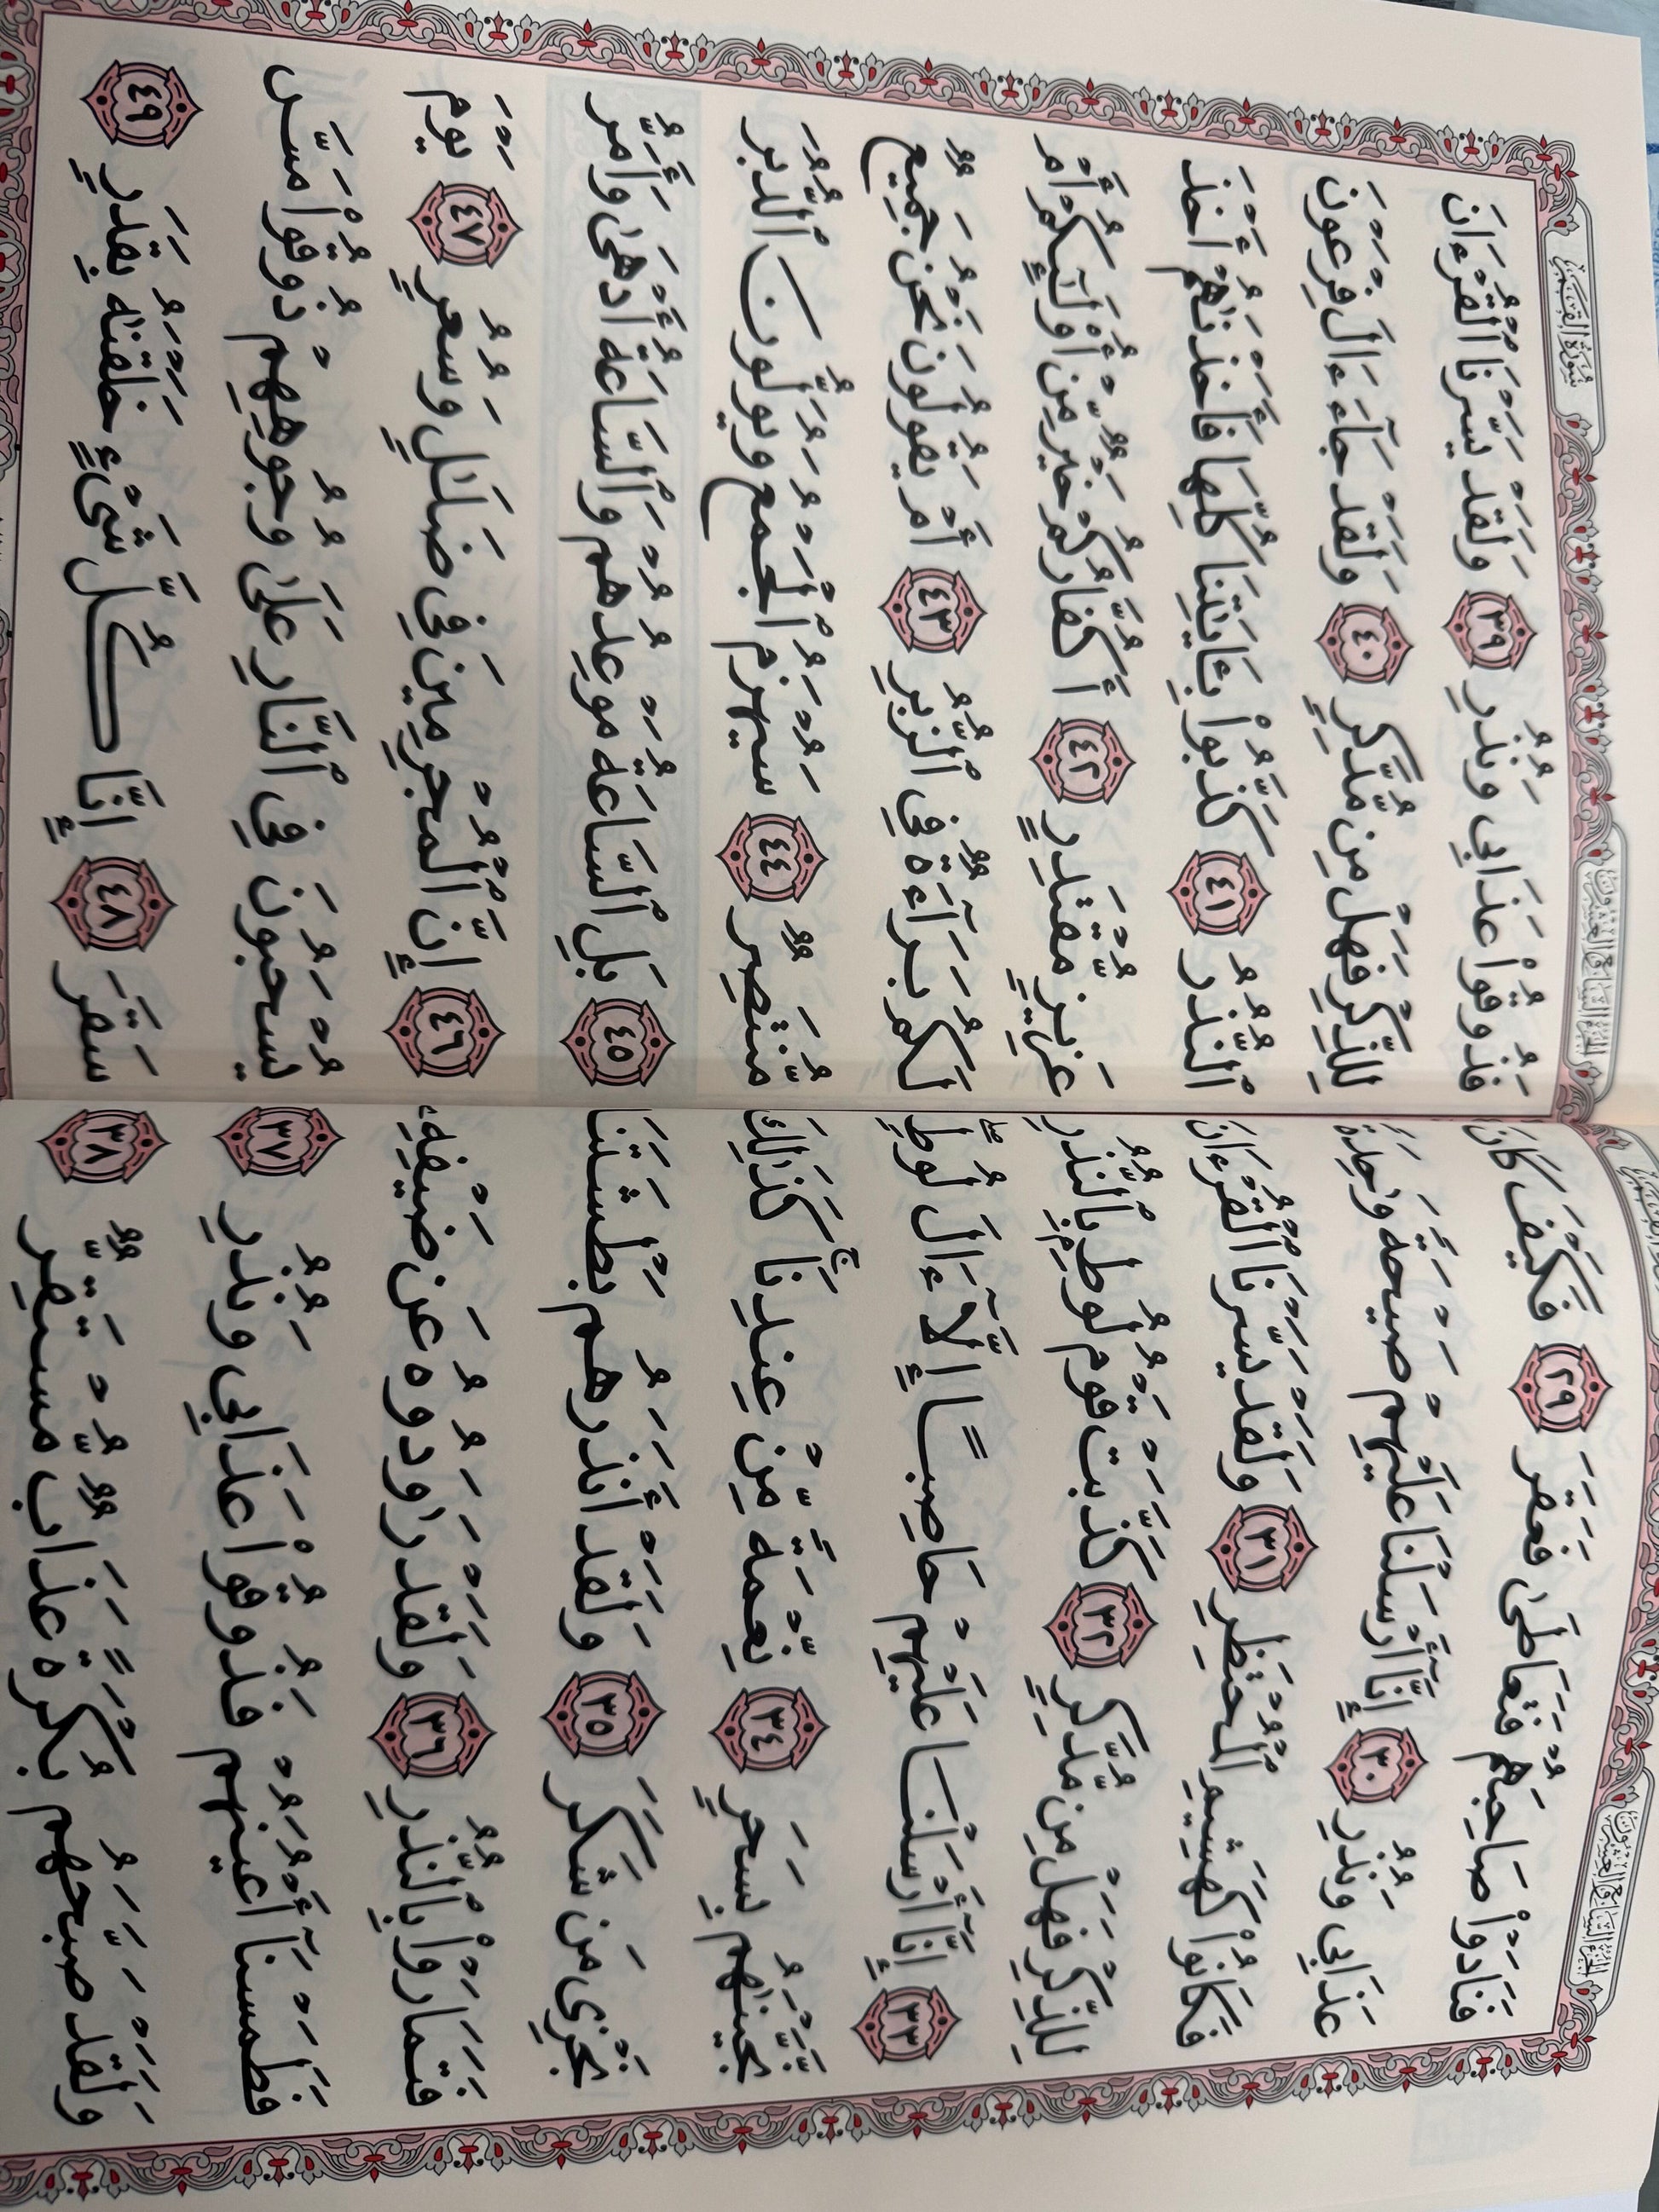 الجزء السابع والعشرون
فَنَادَوْا۟ صَاحِبَهُمْ فَتَعَاطَىٰ فَعَقَرَ ٢٩ فَكَيْفَ كَانَ
عَذَابِى وَنُذُرِ ٣٠ إِنَّآ أَرْسَلْنَا عَلَيْهِمْ صَيْحَةً وَٰحِدَةً
فَكَانُوا۟ كَهَشِيمِ ٱلْمُحْتَظِرِ ٣١ وَلَقَدْ يَسَّرْنَا ٱلْقُرْءَانَ
لِلذِّكْرِ فَهَلْ مِن مُّدَّكِرٍ ٣٢ كَذَّبَتْ قَوْمُ لُوطٍۭ بِٱلنُّذُرِ
٣٣ إِنَّآ أَرْسَلْنَا عَلَيْهِمْ حَاصِبًا إِلَّآ ءَالَ لُوطٍۖ
نَّجَّيْنَٰهُم بِسَحَرٍ ٣٤ نِّعْمَةً مِّنْ عِندِنَاۚ كَذَٰلِكَ
نَجْزِى مَن شَكَرَ ٣٥ وَلَقَدْ أَنذَرَهُم بَطْشَتَنَا
فَتَمَارَوْا۟ بِٱلنُّذُرِ ٣٦ وَلَقَدْ رَٰوَدُوهُ عَن ضَيْفِهِۦ
فَطَمَسْنَآ أَعْيُنَهُمْ فَذُوقُوا۟ عَذَابِى وَنُذُرِ ٣٧
وَلَقَدْ صَبَّحَهُم بُكْرَةً عَذَابٌ مُّسْتَقِرٌّ ٣٨
الجزء السابع والعشرون سورة القمر
فَذُوقُوا۟ عَذَابِى وَنُذُرِ ٣٩ وَلَقَدْ يَسَّرْنَا ٱلْقُرْءَانَ
لِلذِّكْرِ فَهَلْ مِن مُّدَّكِرٍ ٤٠ وَلَقَدْ جَآءَ ءَالَ فِرْعَوْنَ
ٱلنُّذُرُ ٤١ كَذَّبُوا۟ بِـَٔايَٰتِنَا كُلِّهَا فَأَخَذْنَٰهُمْ أَخْذَ
عَزِيزٍ مُّقْتَدِرٍ ٤٢ أَكُفَّارُكُمْ خَيْرٌ مِّنْ أُو۟لَٰٓئِكُمْ أَمْ
لَكُم بَرَآءَةٌ فِى ٱلزُّبُرِ ٤٣ أَمْ يَقُولُونَ نَحْنُ جَمِيعٌ
مُّنتَصِرٌ ٤٤ سَيُهْزَمُ ٱلْجَمْعُ وَيُوَلُّونَ ٱلدُّبُرَ
٤٥ بَلِ ٱلسَّاعَةُ مَوْعِدُهُمْ وَٱلسَّاعَةُ أَدْهَىٰ وَأَمَرُّ
٤٦ إِنَّ ٱلْمُجْرِمِينَ فِى ضَلَٰلٍ وَسُعُرٍ ٤٧ يَوْمَ
يُسْحَبُونَ فِى ٱلنَّارِ عَلَىٰ وُجُوهِهِمْ ذُوقُوا۟ مَسَّ
سَقَرَ ٤٨ إِنَّا كُلَّ شَىْءٍ خَلَقْنَٰهُ بِقَدَرٍ ٤٩